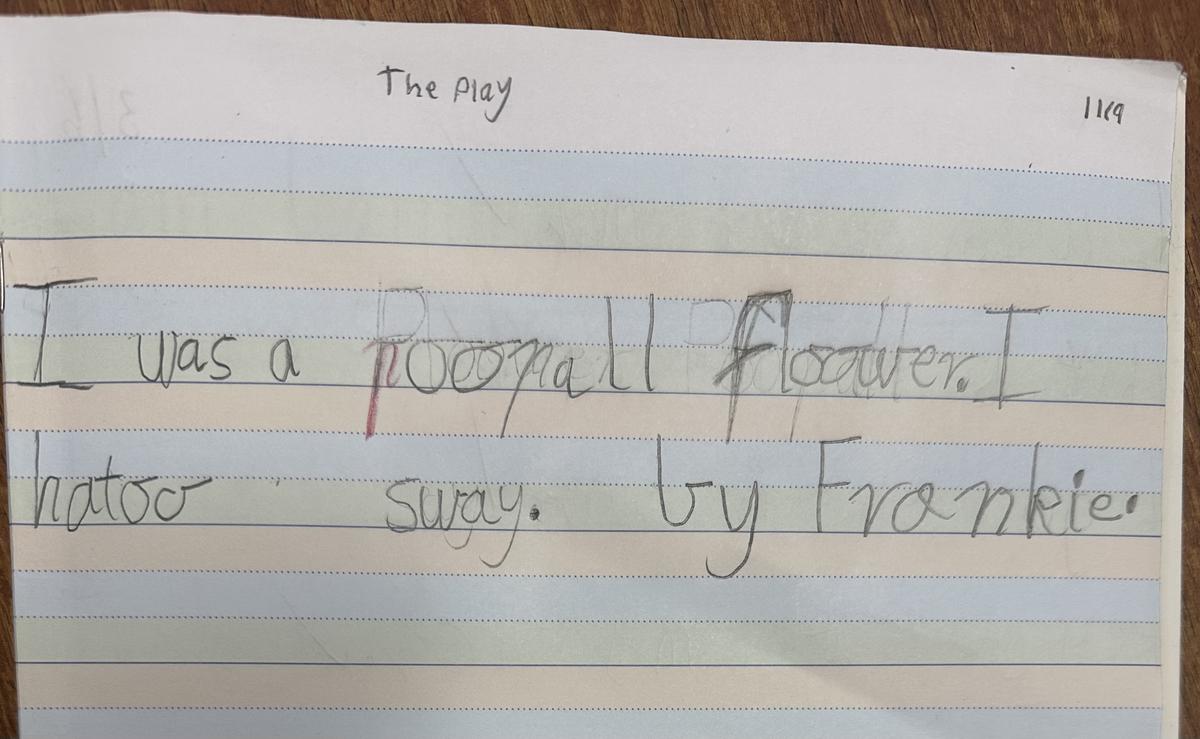 The Play
11/9
I was a poopall floower. I
hatoo sway. by Frankie.